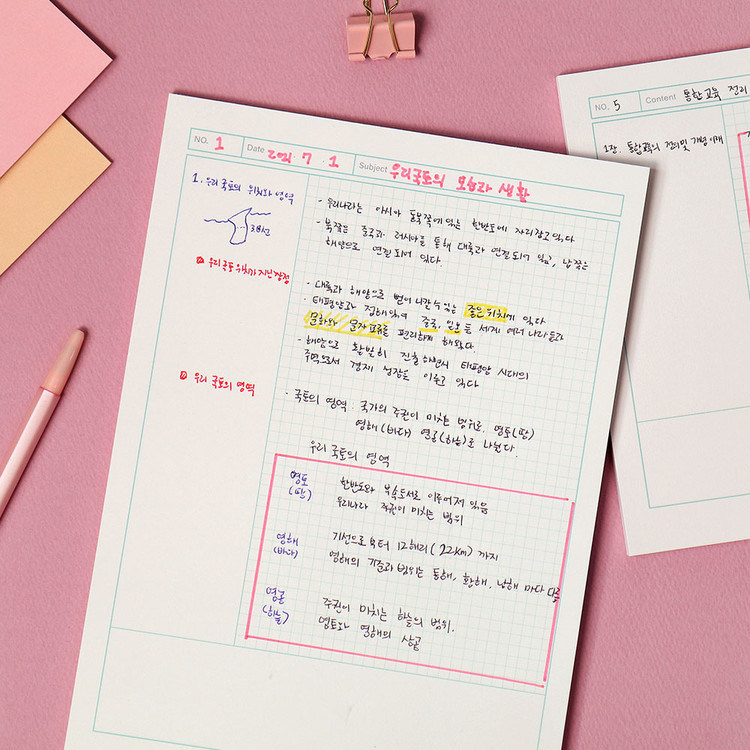 NO. 1 Date 2021. 7. 1 Subject 우리국토의 모습과 생활
1. 우리 국토의 위치와 영역
38선
우리 국토 위치가 지닌 장점
우리 국토의 영역
- 우리나라는 아시아 동북쪽에 있는 한반도에 자리잡고 있다
- 북쪽은 중국과 러시아를 통해 대륙과 연결되어 있고, 남쪽은
해양으로 연결되어 있다.
- 대륙과 해양으로 뻗어 나갈 수 있는 좋은 위치에 있다
- 태평양과 접해있어 중국, 일본 등 세계 여러 나라들과
문화와 물자 교류를 편리하게 해왔다.
- 해양으로 활발히 진출하면서 태평양 시대의
주역으로서 경제 성장도 이루고 있다
- 국토의 영역 : 국가의 주권이 미치는 범위로. 영토(땅)
영해(바다) 영공(하늘)로 나뉜다.
우리 국토의 영역
영토
(땅)
한반도와 부속도서로 이루어져 있음
우리나라 주권이 미치는 범위
영해
(바다)
기선으로부터 12해리(22km) 까지
영해의 기준과 범위는 동해, 황해, 남해 마다 다름
영공
(하늘)
주권이 미치는 하늘의 범위.
영토와 영해의 상공
NO. 5 Content 통합교육 정리
1장. 통합교육의 정의 및 개념 이해